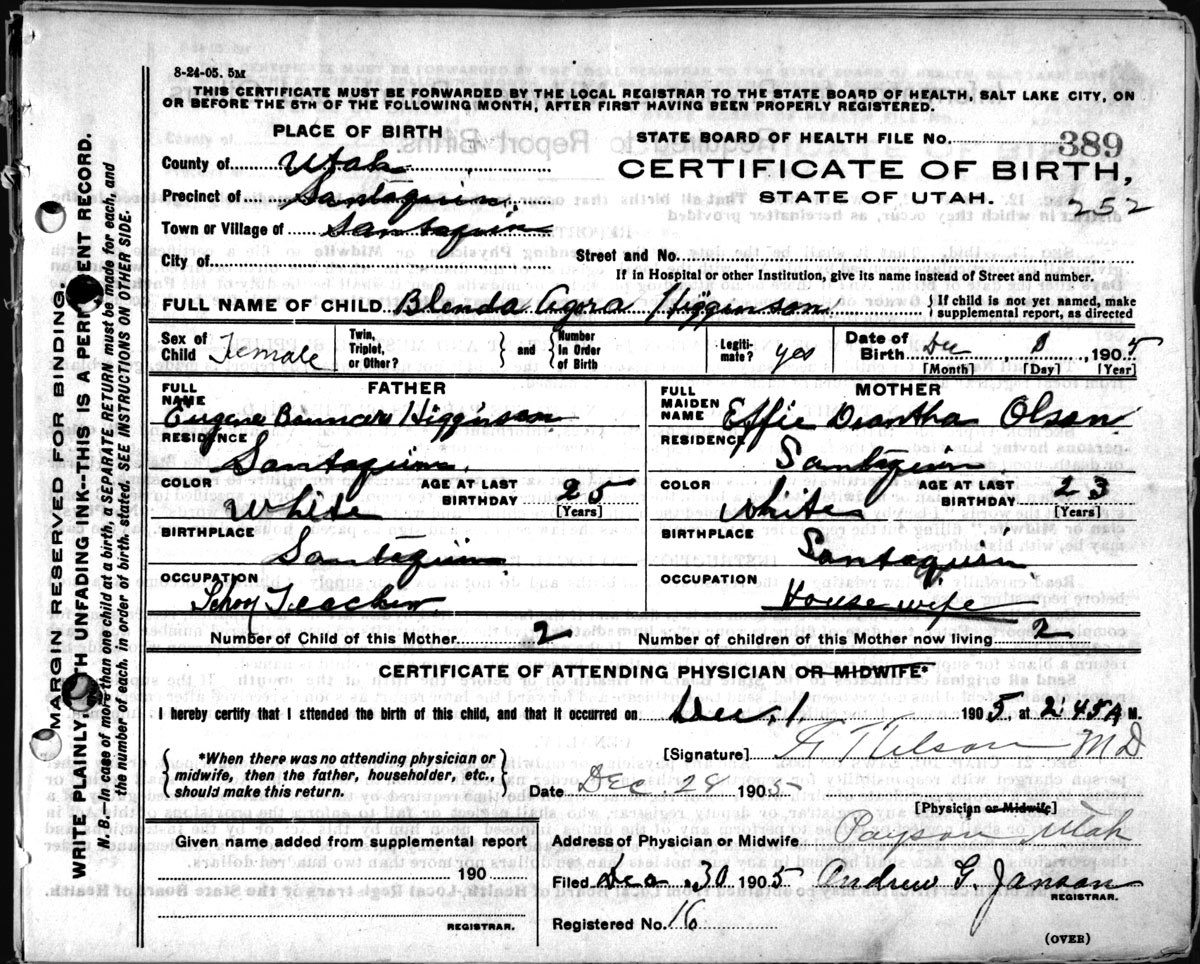 8-24-05. 5M
THIS CERTIFICATE MUST BE FORWARDED BY THE LOCAL REGISTRAR TO THE STATE BOARD OF HEALTH, SALT LAKE CITY, ON
OR BEFORE THE 5TH OF THE FOLLOWING MONTH, AFTER FIRST HAVING BEEN PROPERLY REGISTERED.
PLACE OF BIRTH
STATE BOARD OF HEALTH FILE No. 389
County of Utah
CERTIFICATE OF BIRTH,
Precinct of Santaquin
STATE OF UTAH.
252
Town or Village of Santaquin
City of
Street and No.
If in Hospital or other Institution, give its name instead of Street and number.
FULL NAME OF CHILD Blenda Agora Higginson
If child is not yet named, make
supplemental report, as directed
Sex of Child Female
Twin, Triplet, or Other?
and
Number In Order of Birth
Legitimate? yes
Date of Birth Dec 1, 1905
[Month] [Day] [Year]
FATHER
FULL NAME
Eugene Higginson
RESIDENCE
Santaquin
COLOR
White
AGE AT LAST BIRTHDAY 25
[Years]
BIRTHPLACE
Santaquin
OCCUPATION
Teacher
MOTHER
FULL MAIDEN NAME
Effie Diantha Olson
RESIDENCE
Santaquin
COLOR
White
AGE AT LAST BIRTHDAY 23
[Years]
BIRTHPLACE
Santaquin
OCCUPATION
House wife
Number of Child of this Mother 2
Number of children of this Mother now living 2
CERTIFICATE OF ATTENDING PHYSICIAN OR MIDWIFE*
I hereby certify that I attended the birth of this child, and that it occurred on Dec. 1 1905, at 2:45 A M.
*When there was no attending physician or
midwife, then the father, householder, etc.,
should make this return.
[Signature] Nelson MD
Date Dec. 28 1905
[Physician or Midwife]
Given name added from supplemental report
190
REGISTRAR.
Address of Physician or Midwife Payson Utah
Filed Dec 30 1905 Andrew G. Janson
REGISTRAR.
Registered No. 16
(OVER)
MARGIN RESERVED FOR BINDING.
WRITE PLAINLY WITH UNFADING INK--THIS IS A PERMANENT RECORD.
N. B.--In case of more than one child at a birth, a SEPARATE RETURN must be made for each, and
the number of each, in order of birth, stated. SEE INSTRUCTIONS ON OTHER SIDE.